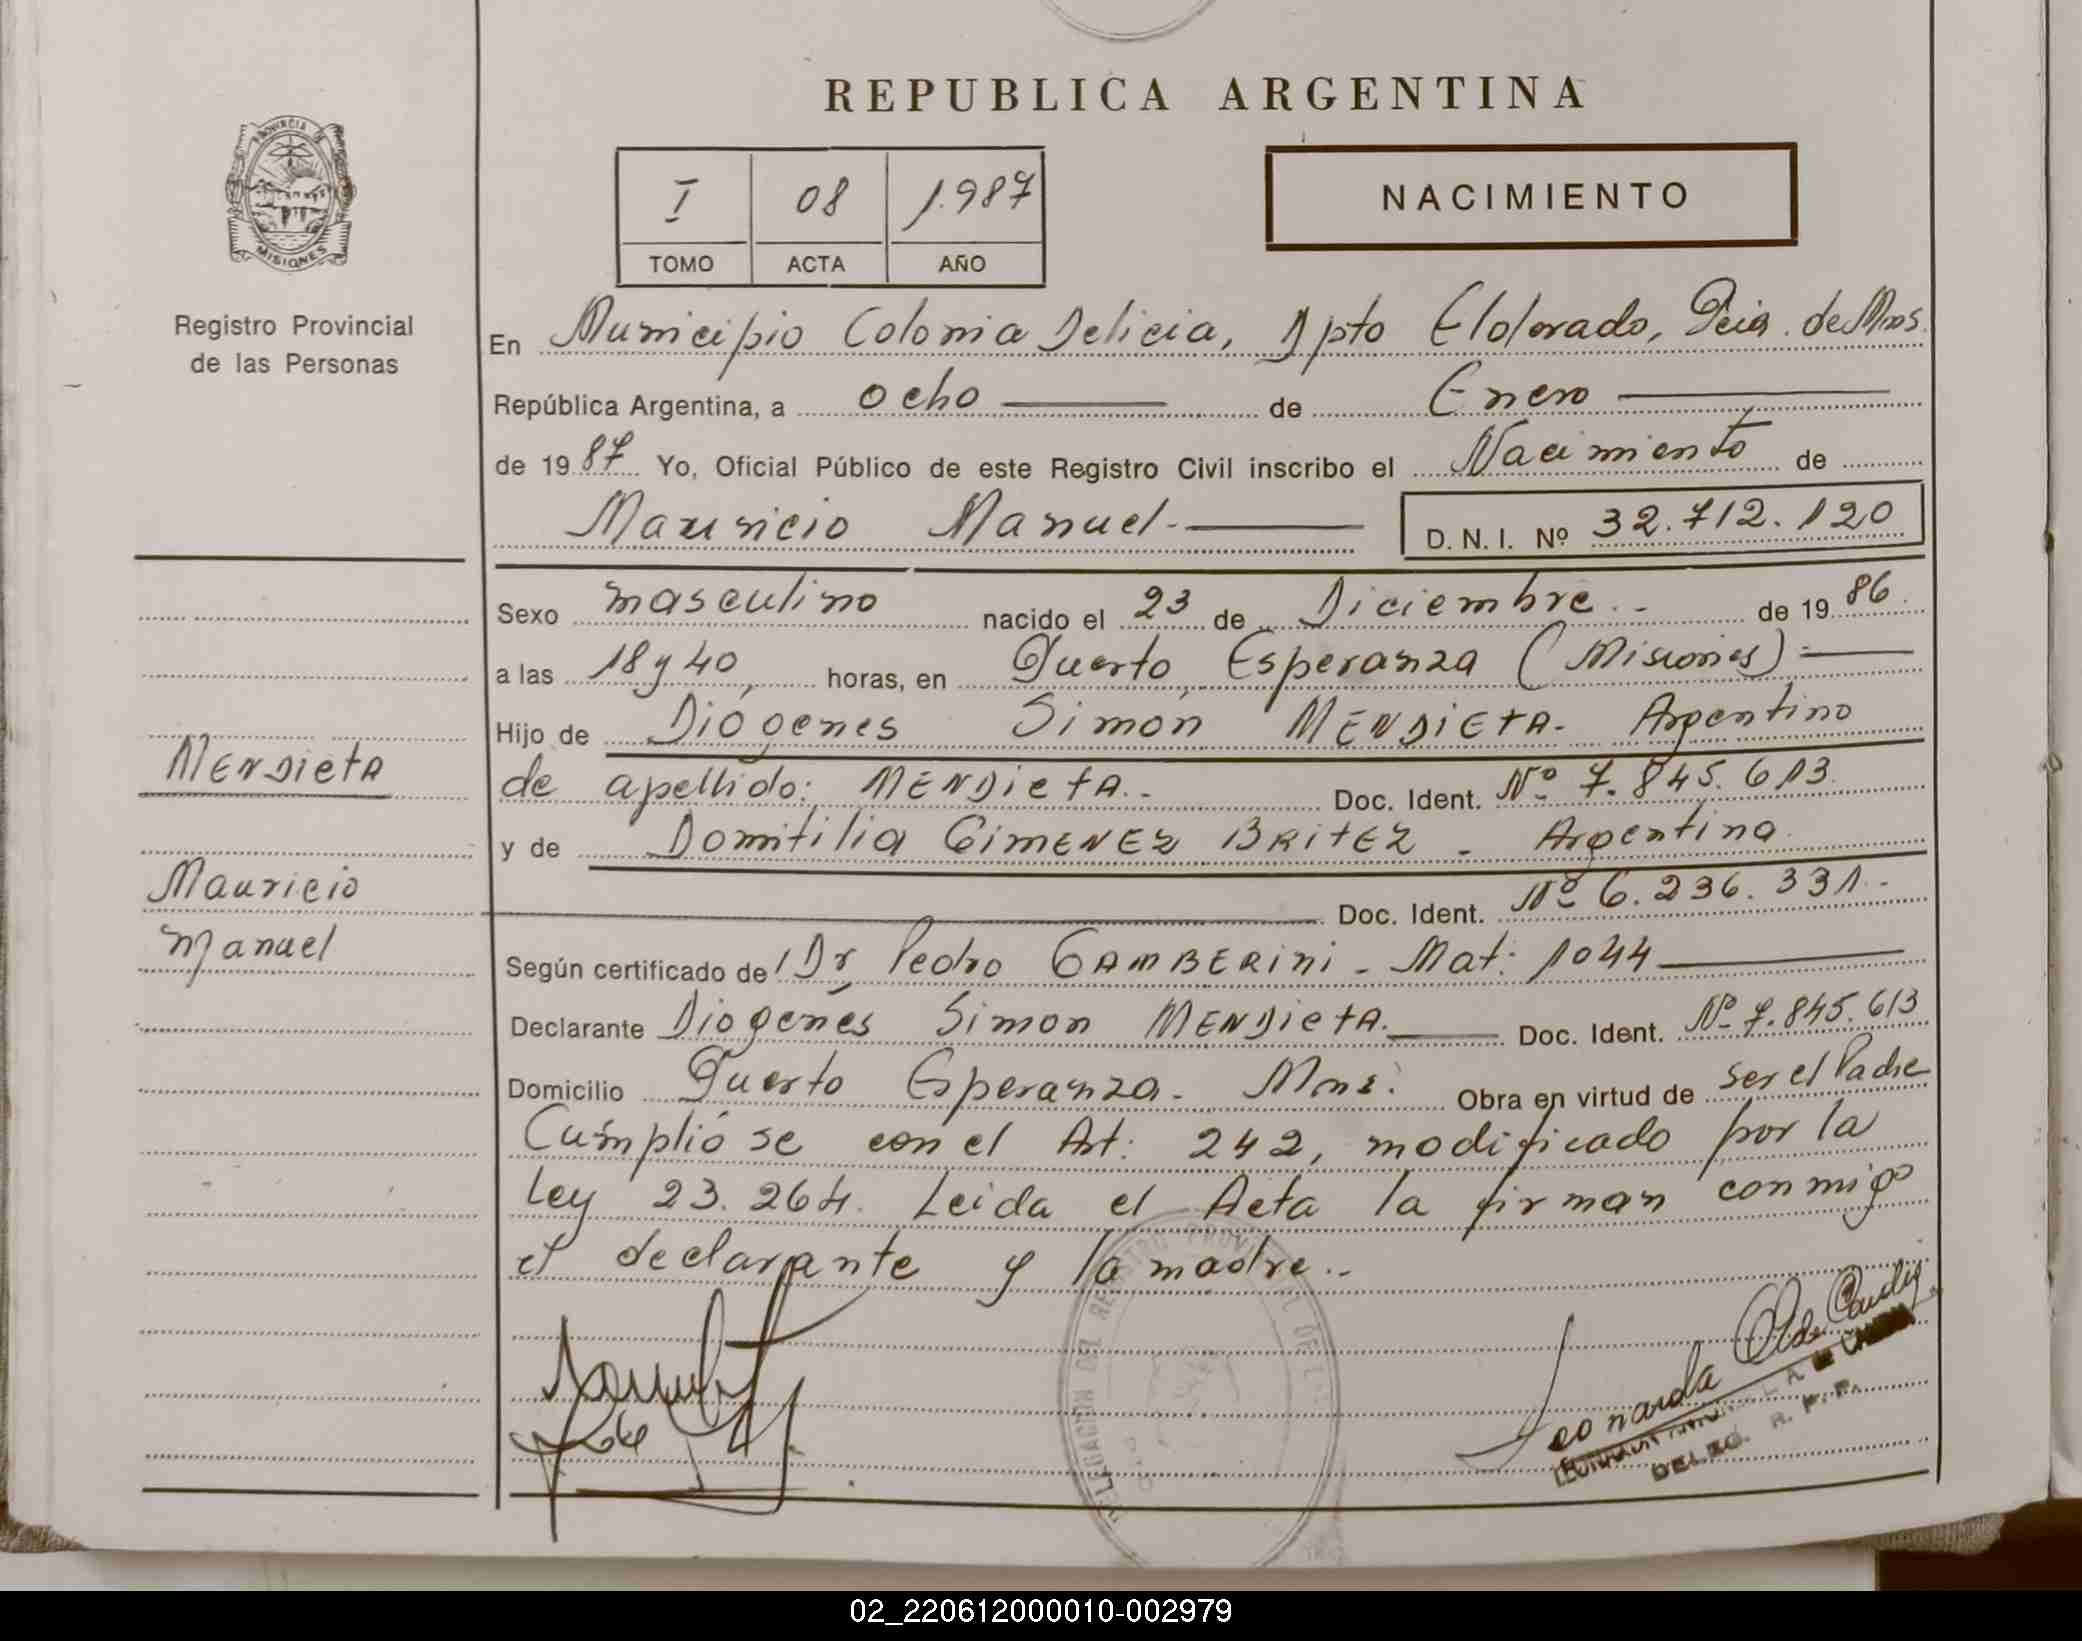 REPUBLICA ARGENTINA
PROVINCIA DE
MISIONES
Registro Provincial
de las Personas
I 08 1.987
TOMO ACTA AÑO
NACIMIENTO
En Municipio Colonia Delicia, Dpto Eldorado, Pcia. de Mnes.
República Argentina, a ocho de Enero
de 1987 Yo, Oficial Público de este Registro Civil inscribo el Nacimiento de
Mauricio Manuel.- D. N. I. Nº 32.712.120
Sexo masculino nacido el 23 de Diciembre.- de 1986.
a las 18 y 40, horas, en Puerto Esperanza (Misiones)
Hijo de Diógenes Simón MENDIETA- Argentino
de apellido: MENDIETA.- Doc. Ident. Nº 7.845.613.
y de Domitilia GIMENEZ BRITEZ - Argentina.
Doc. Ident. Nº 6.236.331.-
Según certificado de Dr Pedro GAMBERINI - Mat: 1044
Declarante Diogenes Simon MENDIETA. Doc. Ident. Nº 7.845.613
Domicilio Puerto Esperanza - Mnes. Obra en virtud de ser el Padre
Cumplió se con el Art: 242, modificado por la
Ley 23.264. Leida el Acta la firman conmigo
el declarante y la madre.-
MENDIETA
Mauricio
Manuel
DELEGACION DEL REGISTRO
Leonarda
DELEG. R. P. P.
02_220612000010-002979